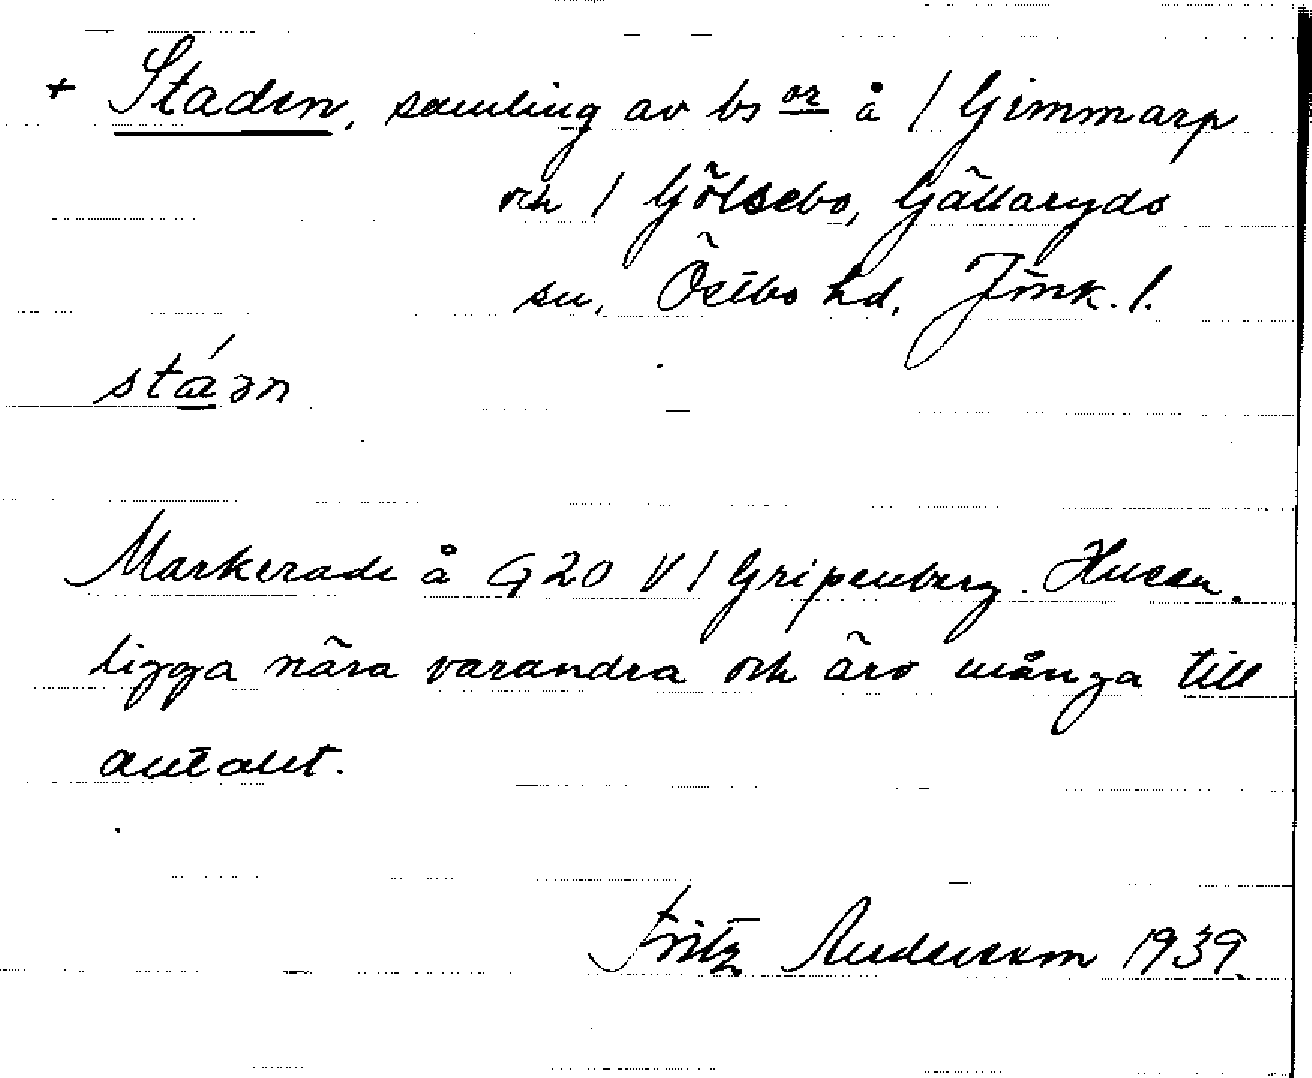 + Staden, samling av bs or å 1 Gimmarp
och 1 Gölsebo, Gällaryds
sn, Östbo hd. Jönk. l.
stáən
Markerade å G 20 V 1 Gripenberg. Husen
ligga nära varandra och äro många till
antalet.
Fritz Andersson 1939.